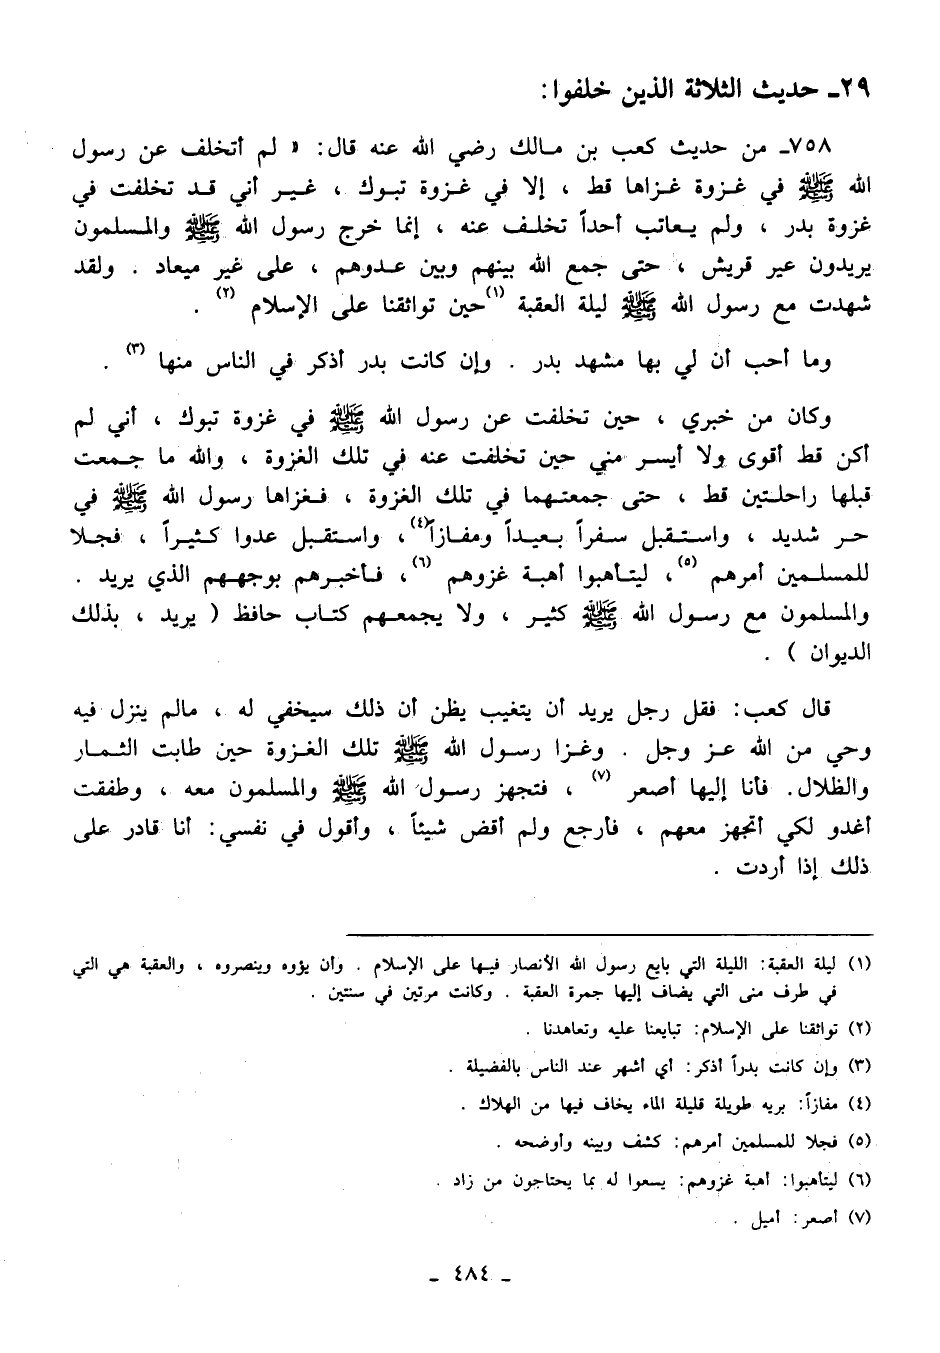 ٢٩ـ حديث الثلاثة الذين خلفوا:
٧٥٨ـ من حديث كعب بن مالك رضي الله عنه قال: « لم أتخلف عن رسول
الله ﷺ في غزوة غزاها قط ، إلا في غزوة تبوك ، غير أني قد تخلفت في
غزوة بدر ، ولم يعاتب أحداً تخلف عنه ، إنما خرج رسول الله ﷺ والمسلمون
يريدون عير قريش ، حتى جمع الله بينهم وبين عدوهم ، على غير ميعاد . ولقد
شهدت مع رسول الله ﷺ ليلة العقبة (١) حين تواثقنا على الإسلام (٢) .
وما أحب أن لي بها مشهد بدر . وإن كانت بدر أذكر في الناس منها (٣) .
وكان من خبري ، حين تخلفت عن رسول الله ﷺ في غزوة تبوك ، أني لم
أكن قط أقوى ولا أيسر مني حين تخلفت عنه في تلك الغزوة ، والله ما جمعت
قبلها راحلتين قط ، حتى جمعتهما في تلك الغزوة ، فغزاها رسول الله ﷺ في
حر شديد ، واستقبل سفراً بعيداً ومفازاً (٤)، واستقبل عدوا كثيراً ، فجلا
للمسلمين أمرهم (٥)، ليتأهبوا أهبة غزوهم (٦)، فأخبرهم بوجههم الذي يريد .
والمسلمون مع رسول الله ﷺ كثير ، ولا يجمعهم كتاب حافظ ( يريد ، بذلك
الديوان ) .
قال كعب: فقل رجل يريد أن يتغيب يظن أن ذلك سيخفي له ، مالم ينزل فيه
وحي من الله عز وجل . وغزا رسول الله ﷺ تلك الغزوة حين طابت الثمار
والظلال. فأنا إليها أصعر (٧) ، فتجهز رسول الله ﷺ والمسلمون معه ، وطفقت
أغدو لكي أتجهز معهم ، فأرجع ولم أقض شيئاً ، وأقول في نفسي: أنا قادر على
ذلك إذا أردت .
(١) ليلة العقبة: الليلة التي بايع رسول الله الأنصار فيها على الإسلام . وأن يؤوه وينصروه ، والعقبة هي التي
في طرف منى التي يضاف إليها جمرة العقبة . وكانت مرتين في سنتين .
(٢) تواثقنا على الإسلام: تبايعنا عليه وتعاهدنا .
(٣) وإن كانت بدراً أذكر: أي أشهر عند الناس بالفضيلة .
(٤) مفازاً: بريه طويلة قليلة الماء يخاف فيها من الهلاك .
(٥) فجلا للمسلمين أمرهم: كشف وبينه وأوضحه .
(٦) ليتأهبوا: أهبة غزوهم: يسعوا له بما يحتاجون من زاد .
(٧) أصعر: أميل .
ـ ٤٨٤ ـ